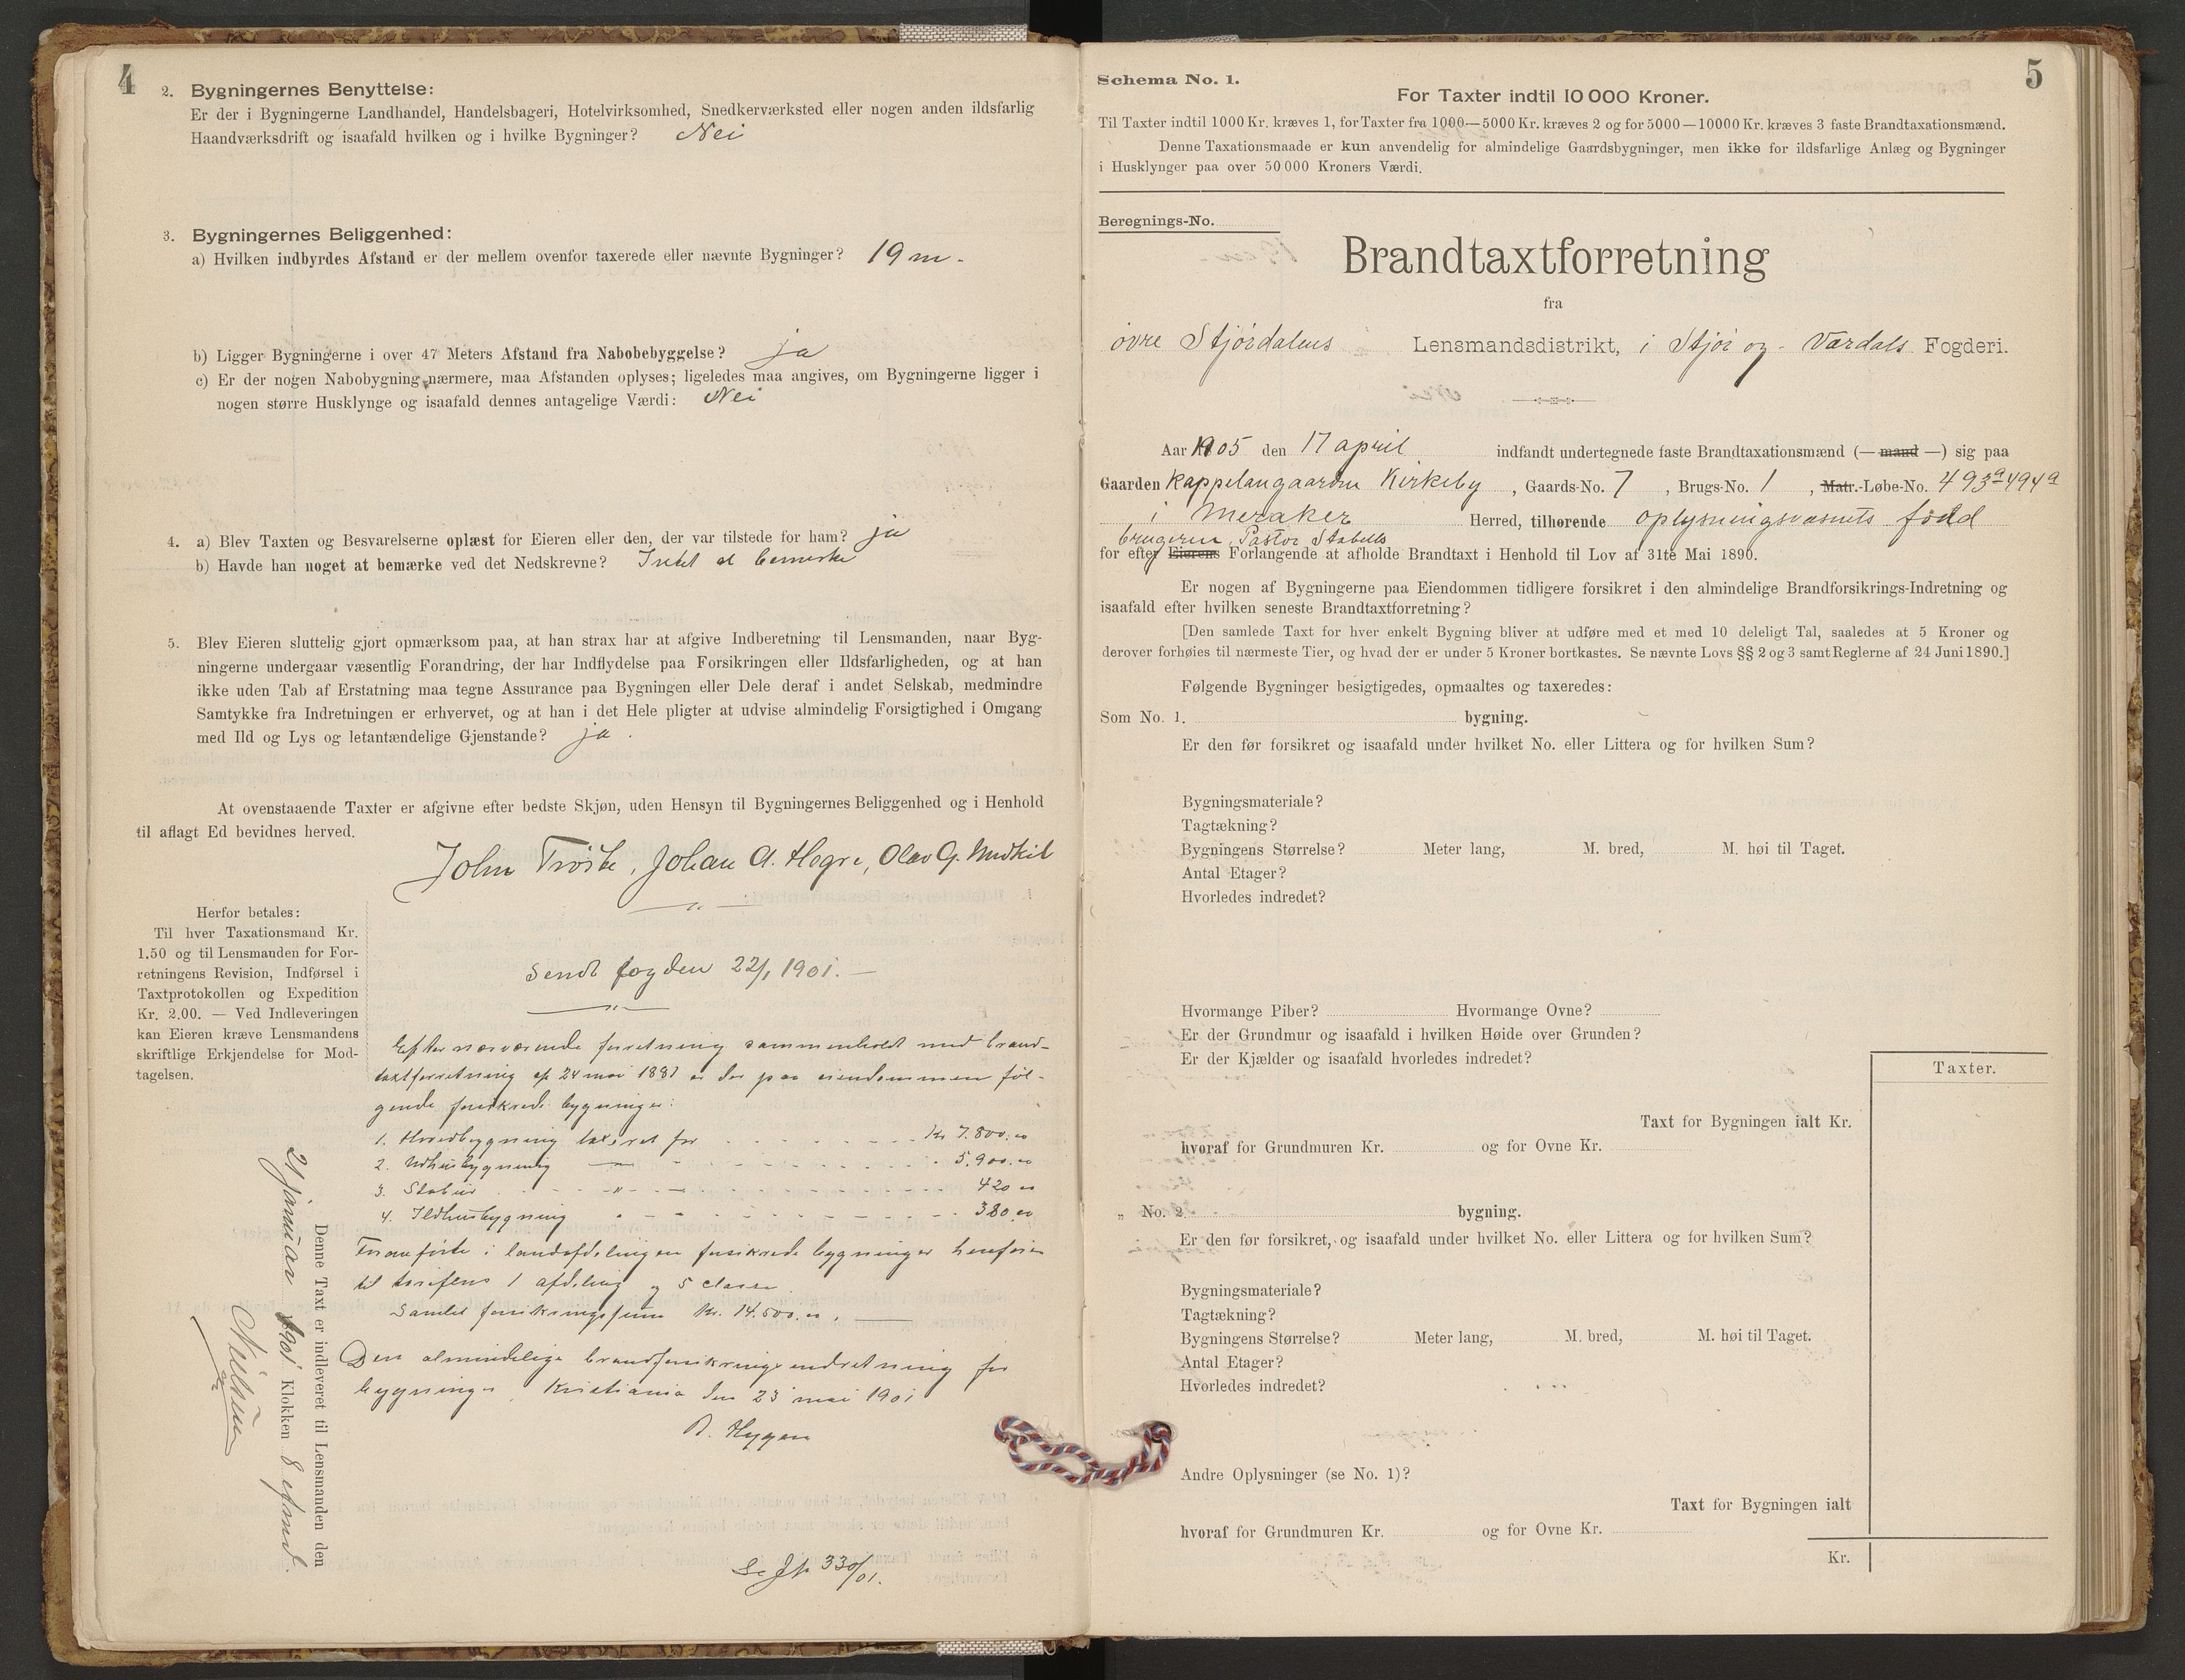 4
2. Bygningernes Benyttelse:
Er der i Bygningerne Landhandel, Handelsbageri, Hotelvirksomhed, Snedkerværksted eller nogen anden ildsfarlig
Haandværksdrift og isaafald hvilken og i hvilke Bygninger? Nei
3. Bygningernes Beliggenhed:
a) Hvilken indbyrdes Afstand er der mellem ovenfor taxerede eller nævnte Bygninger? 19 m -
b) Ligger Bygningerne i over 47 Meters Afstand fra Nabobebyggelse? ja
c) Er der nogen Nabobygning nærmere, maa Afstanden oplyses; ligeledes maa angives, om Bygningerne ligger i
nogen større Husklynge og isaafald dennes antagelige Værdi: Nei
4. a) Blev Taxten og Besvarelserne oplæst for Eieren eller den, der var tilstede for ham? ja
b) Havde han noget at bemærke ved det Nedskrevne? Intet at bemerke
5. Blev Eieren sluttelig gjort opmærksom paa, at han strax har at afgive Indberetning til Lensmanden, naar Byg-
ningerne undergaar væsentlig Forandring, der har Indflydelse paa Forsikringen eller Ildsfarligheden, og at han
ikke uden Tab af Erstatning maa tegne Assurance paa Bygningen eller Dele deraf i andet Selskab, medmindre
Samtykke fra Indretningen er erhvervet, og at han i det Hele pligter at udvise almindelig Forsigtighed i Omgang
med Ild og Lys og letantændelige Gjenstande? ja.
At ovenstaaende Taxter er afgivne efter bedste Skjøn, uden Hensyn til Bygningernes Beliggenhed og i Henhold
til aflagt Ed bevidnes herved.
John Trøite, Johan A. Hegre, Olav G.
Herfor betales:
Til hver Taxationsmand Kr.
1.50 og til Lensmanden for For-
retningens Revision, Indførsel i
Taxtprotokollen og Expedition
Kr. 2.00. — Ved Indleveringen
kan Eieren kræve Lensmandens
skriftlige Erkjendelse for Mod-
tagelsen.
Sendt fogden 22/1 1901. —
Efter nærværende forretning sammenholdt med brand-
taxtforretning af 24 mai 1887 er der paa eiendommen føl-
gende forsikrede bygninger:
1. Hovedbygning taxeret for Kr 7.800.00
2. Udhusbygning — 5.900.00
3. Stabur " 420 00
4. Ildhusbygning " 380.00
i landafdelingen forsikrede bygninger henføres
til tariffens 1 afdeling og 5 classe
Samlet forsikringssum Kr. 14.500.00.
Den almindelige brandforsikringsindretning for
bygninger, Kristiania den 23 mai 1901
Hygen
Se Jp 330/01.
Denne Taxt er indleveret til Lensmanden den
21 januar 1901 Klokken 8 efmd.
Neilsen
5
Schema No. 1.
For Taxter indtil 10 000 Kroner.
Til Taxter indtil 1000 Kr. kræves 1, for Taxter fra 1000—5000 Kr. kræves 2 og for 5000—10000 Kr. kræves 3 faste Brandtaxationsmænd.
Denne Taxationsmaade er kun anvendelig for almindelige Gaardsbygninger, men ikke for ildsfarlige Anlæg og Bygninger
i Husklynger paa over 50 000 Kroners Værdi.
Beregnings-No.
Brandtaxtforretning
fra
øvre Stjørdalens Lensmandsdistrikt, i Stjør og Værdals Fogderi.
Aar 1905 den 17 april indfandt undertegnede faste Brandtaxationsmænd (— mand —) sig paa
Gaarden Kappelangaarden Kirkeby, Gaards-No. 7, Brugs-No. 1, Matr.-Løbe-No. 493a 494a
i Meraker Herred, tilhørende oplysningsvæsnets fond
brugeren, Pastor Stabells
for efter Eierens Forlangende at afholde Brandtaxt i Henhold til Lov af 31te Mai 1890.
Er nogen af Bygningerne paa Eiendommen tidligere forsikret i den almindelige Brandforsikrings-Indretning og
isaafald efter hvilken seneste Brandtaxtforretning?
[Den samlede Taxt for hver enkelt Bygning bliver at udføre med et med 10 deleligt Tal, saaledes at 5 Kroner og
derover forhøies til nærmeste Tier, og hvad der er under 5 Kroner bortkastes. Se nævnte Lovs §§ 2 og 3 samt Reglerne af 24 Juni 1890.]
Følgende Bygninger besigtigedes, opmaaltes og taxeredes:
Som No. 1. bygning.
Er den før forsikret og isaafald under hvilket No. eller Littera og for hvilken Sum?
Bygningsmateriale?
Tagtækning?
Bygningens Størrelse? Meter lang, M. bred, M. høi til Taget.
Antal Etager?
Hvorledes indredet?
Hvormange Piber? Hvormange Ovne?
Er der Grundmur og isaafald i hvilken Høide over Grunden?
Er der Kjælder og isaafald hvorledes indredet?
Taxter.
Taxt for Bygningen ialt Kr.
hvoraf for Grundmuren Kr. og for Ovne Kr.
„ No. 2. bygning.
Er den før forsikret, og isaafald under hvilket No. eller Littera og for hvilken Sum?
Bygningsmateriale?
Tagtækning?
Bygningens Størrelse? Meter lang, M. bred, M. høi til Taget.
Antal Etager?
Hvorledes indredet?
Andre Oplysninger (se No. 1)?
Taxt for Bygningen ialt
hvoraf for Grundmuren Kr. og for Ovne Kr.
Kr.